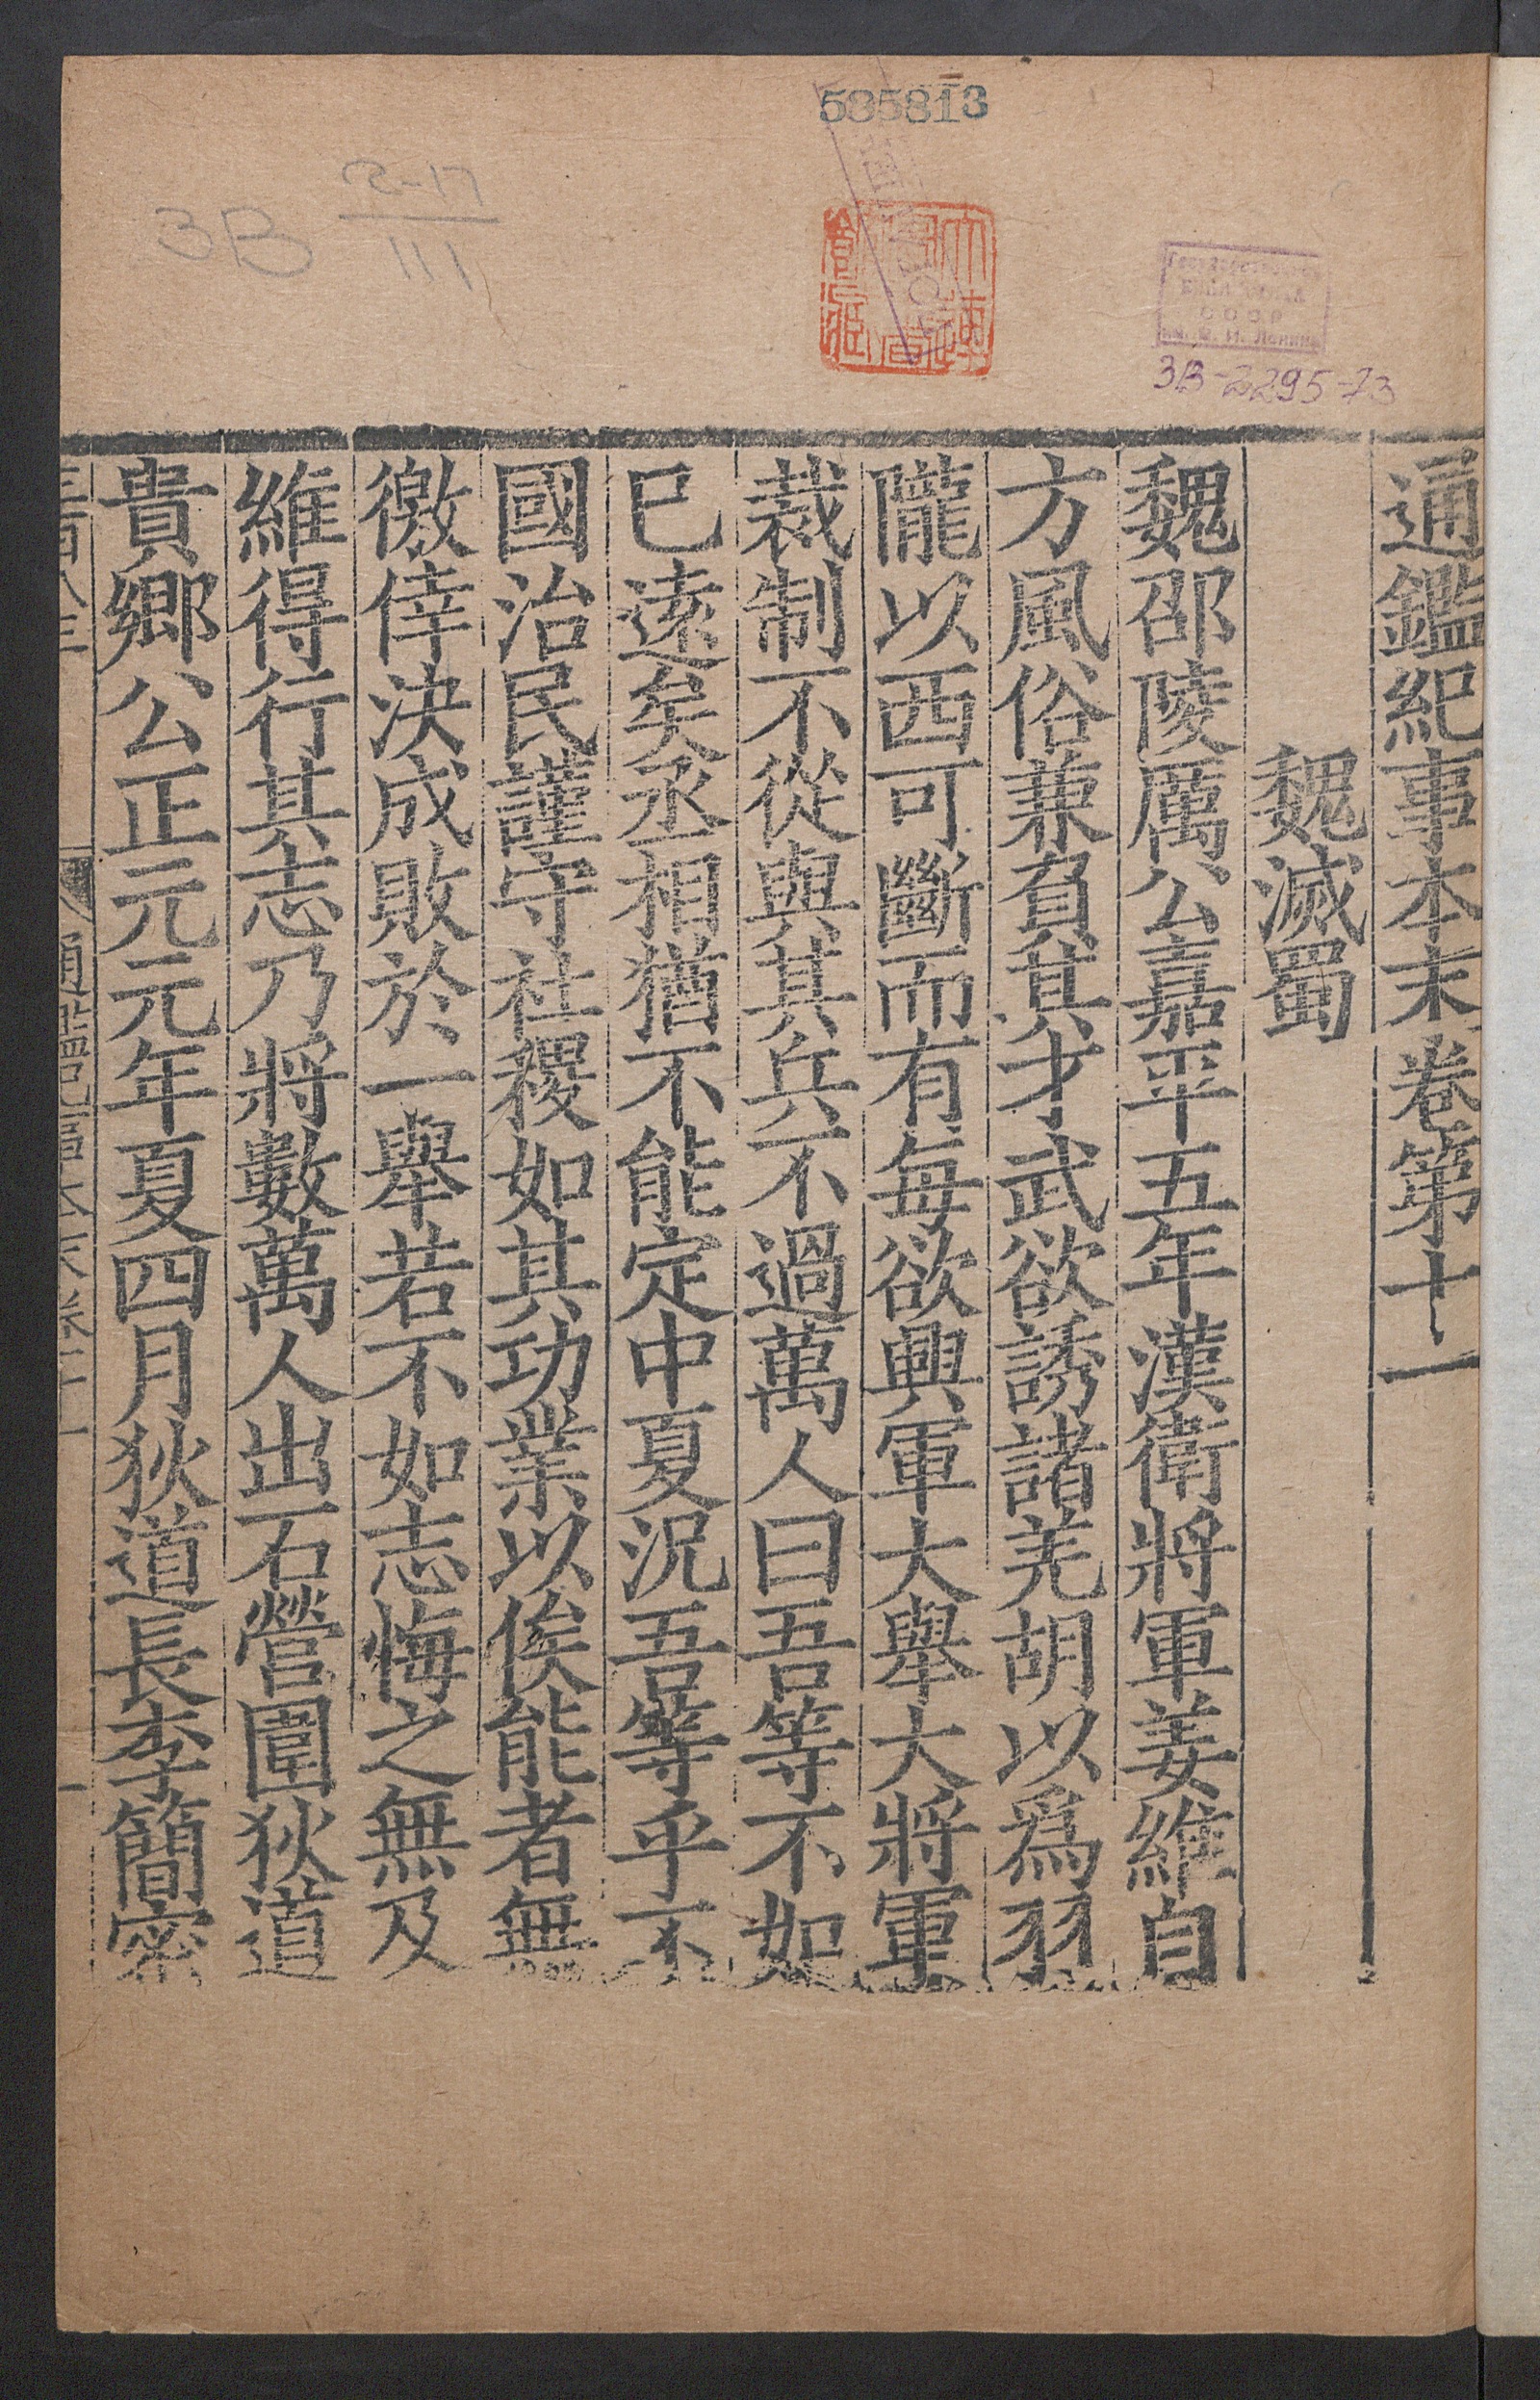 535813
3B
2-17
111
СССР
им. В. И. Ленина
3B-2295-73
通鑑紀事本末卷第十一
魏滅蜀
魏邵陵厲公嘉平五年漢衛將軍姜維自
方風俗兼負其才武欲誘諸羌胡以爲羽
隴以西可斷而有每欲興軍大舉大將軍
裁制不從與其兵不過萬人曰吾等不如
已遠矣丞相猶不能定中夏況吾等乎不
國治民謹守社稷如其功業以俟能者無
徼倖決成敗於一舉若不如志悔之無及
維得行其志乃將數萬人出石營圍狄道
貴鄉公正元元年夏四月狄道長李簡密